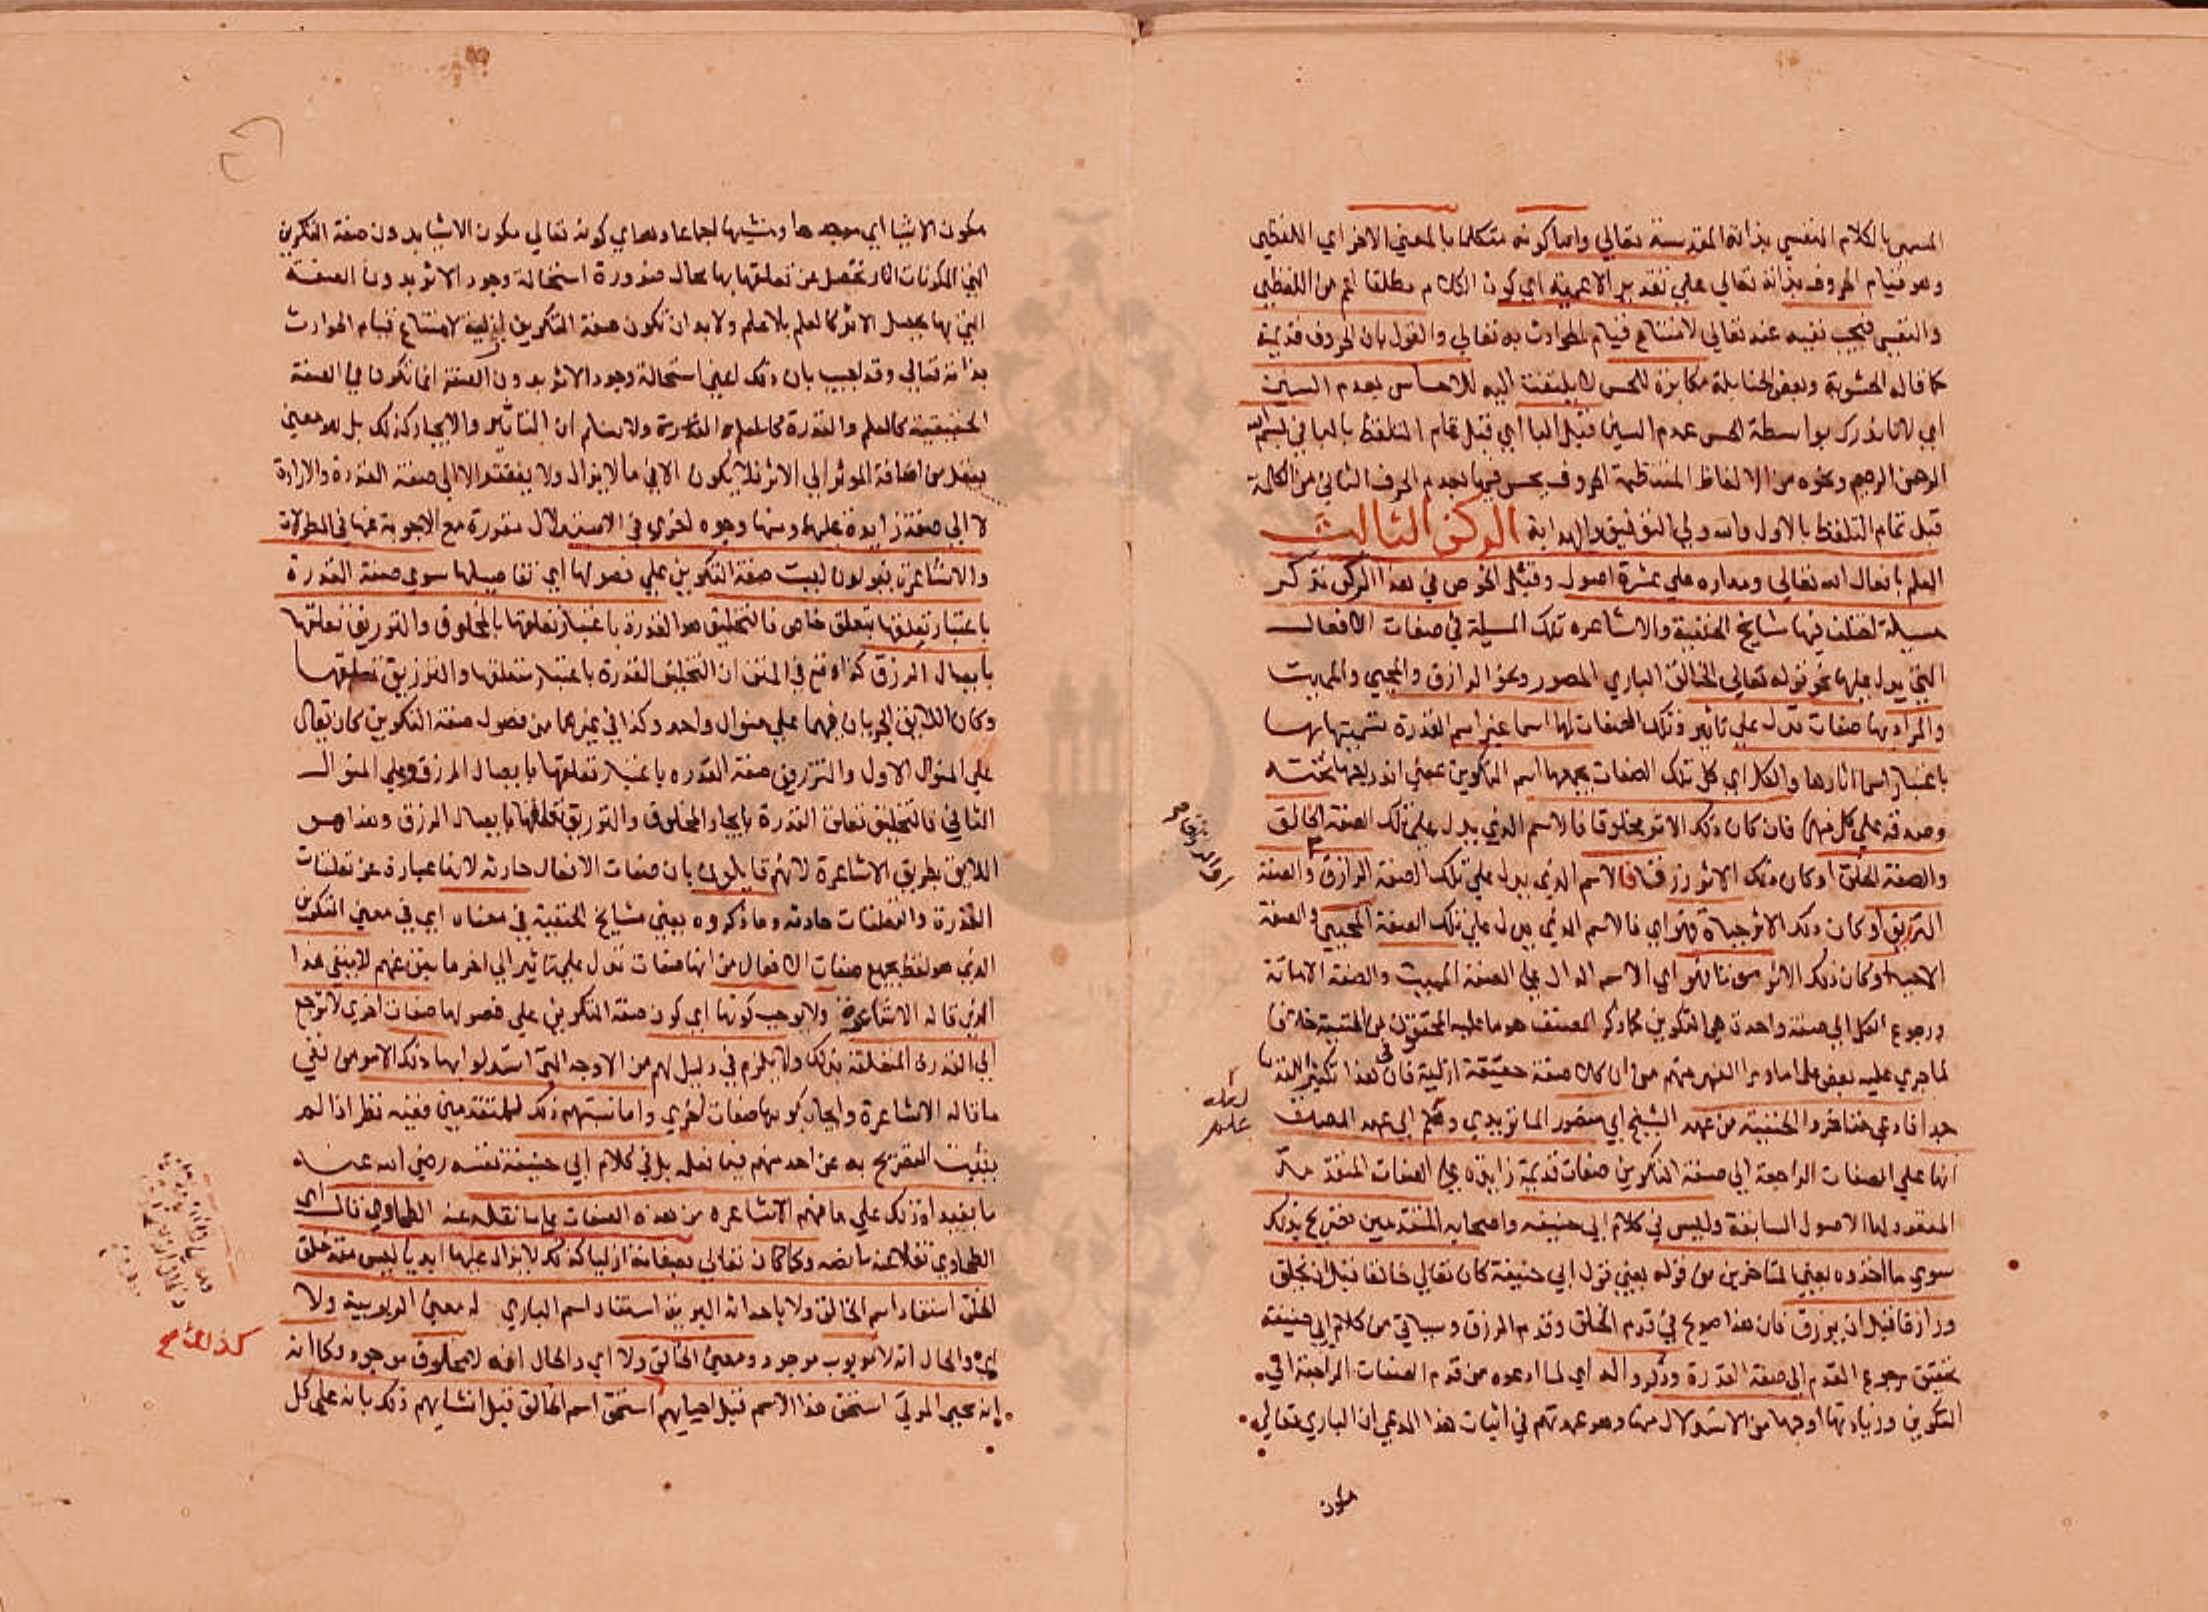 المسمى بالكلام النفسي بذاته المقدسة تعالى واما كونه متكلما بالمعنى الاخر اي اللفظي
وهو قيام الحروف بذاته تعالى على تقدير الاعمية اي كون الكلام مطلقا اعم من اللفظي
والنفسي فيجب نفيه عنه تعالى لامتناع قيام الحوادث به تعالى والقول بان الحروف قديمة
كما قاله الحشوية وبعض الحنابلة مكابرة للحس لا يلتفت اليه للاحساس بعدم السين
اي لانا ندرك بواسطة الحس عدم السين قبل الباء اي قبل تمام التلفظ بالباء في بسم الله
الرحمن الرحيم ونحوه من الالفاظ المنتظمة الحروف يحس فيها بعدم الحرف الثاني من الكلمة
قبل تمام التلفظ بالاول والله ولي التوفيق والهداية الركن الثالث
العلم بافعال الله تعالى ومداره على عشرة اصول وقبل الخوض في هذا الركن نذكر
مسيلة اختلف فيها مشايخ الحنفية والاشاعره تلك المسيلة في صفات الافعال
التي يدل عليها نحو قوله تعالى الخالق الباري المصور ونحو الرازق والمحيي والمميت
والمراد بها صفات تدل على تاثير وتلك الصفات لها اسما غير اسم القدرة تسميتها بها
باعتبار اسما اثارها والكل اي كل تلك الصفات يجمعها اسم التكوين بمعنى اندراجها تحته
وصدقه على كل منها فان كان ذلك الاثر مخلوقا فالاسم الذي يدل على تلك الصفة الخالق
والصفة الخلق او كان ذلك الاثر رزقا فالاسم الذي يدل على تلك الصفة الرازق والصفة
الترزيق او كان ذلك الاثر حياة فهو اي فالاسم الذي يدل على تلك الصفة المحيي والصفة
الاحيا او كان ذلك الاثر موتا فهو اي الاسم الدال على الصفة المميت والصفة الاماتة
ورجوع الكل الى صفة واحدة هي التكوين كما ذكر المصنف هو ما عليه المحققون من الحنفية خلافا
لما جرى عليه بعض علما ما ورا النهر منهم من ان كلا صفة حقيقة ازلية فان في هذا تكثير القدما
جدا فادعى متاخروا الحنفية من عهد الشيخ ابي منصور الماتريدي وهلم الى عهد المصنف
انها على الصفات الراجعة الى صفة التكوين صفات قديمة زايدة على الصفات المتقدمة
المعقود لها الاصول السابقة وليس في كلام ابي حنيفه واصحابه المتقدمين تصريح بذلك
سوى ما اخذوه يعني المتاخرين من قوله يعني قول ابي حنيفة كان تعالى خالقا قبل ان يخلق
ورازقا قبل ان يرزق فان هذا صريح في قدم الخلق وقدم الرزق وسياتي من كلام ابي حنيفة
تحقيق رجوع القدم الى صفة القدرة وذكروا له اي لما ادعوه من قدم الصفات الراجعة الى
التكوين وزيادتها اوجها من الاستدلال منها وهو عمدتهم في اثبات هذا المدعي ان الباري تعالى
مكون
مكون الاشيا اي موجدها ومنشيها اجماعا وهو اي كونه تعالى مكون الاشيا بدون صفة التكوين
التي المكونات اثار تحصل عن تعلقها بها محال ضرورة استحالة وجود الاثر بدون الصفة
التي بها يحصل الاثر كالعلم بلا علم ولا بد ان تكون صفة التكوين ازلية لامتناع قيام الحوادث
بذاته تعالى وقد اجيب بان ذلك اعني استحالة وجود الاثر بدون الصفة انما تكون في الصفة
الحقيقية كالعلم والقدرة ولا نسلم ان التاثير والايجاد كذلك بل هو معنى
يعقل من اضافة الموثر الى الاثر فلا يكون الا في ما لا يزال ولا يفتقر الا الى صفة القدرة والارادة
لا الى صفة زايدة عليهما ومنها وجوه اخرى في الاستدلال مقررة مع الاجوبة عنها في المطولات
والاشاعرة يقولون ليست صفة التكوين على فصولها اي تفاصيلها سوى صفة القدرة
باعتبار تعلقها بتعلق خاص فالتخليق هو القدرة باعتبار تعلقها بالمخلوق والترزيق تعلقها
بايصال الرزق كذا وقع في المتن ان التخليق القدرة باعتبار تعلقها والترزيق تعلقها
وكان اللايق الجريان فيهما على منوال واحد وكذا في غيرهما من فصول صفة التكوين كان يقال
على المنوال الاول والترزيق صفة القدره باعتبار تعلقها بايصال الرزق وعلى المنوال
الثاني فالتخليق تعلق القدرة بايجاد المخلوق والترزيق تعلقها بايصال الرزق وهذا هو
اللايق بطريق الاشاعرة لانهم قايلون بان صفات الافعال حادثه لانها عبارة عن تعلقات
القدرة والتعلقات حادثه وما ذكروه يعني مشايخ الحنفية في معناه اي في معنى التكوين
الذي هو لفظ يجمع صفات الافعال من انها صفات تدل على تاثير الى اخر ما سبق عنهم لا ينفي هذا
الذي قاله الاشاعرة ولا يوجب كونها اي كون صفة التكوين على فصولها صفات اخرى لا ترجع
الى القدرة المتعلقة بذلك ولا يلزم في دليل لهم من الاوجه التي استدلوا بها ذلك الامر من نفي
ما قاله الاشاعرة وايجاب كونها صفات اخرى واما نسبتهم ذلك للمتقدمين ففيه نظر اذ لم
يثبت التصريح به عن احد منهم فيما نعلمه بل في كلام ابي حنيفة نفسه رضي الله عنه
ما يفيد ان ذلك على ما فهم الاشاعره من هذه الصفات على ما نقله عنه الطحاوي قال اي
الطحاوي نقلا عنه ما نصه وكما كان تعالى بصفاته ازليا كذلك لا يزال عليها ابديا ليس منذ خلق
الخلق استفاد اسم الخالق ولا باحداثه البرية استفاد اسم الباري له معنى الربوبية ولا
اي والحال انه لا مربوب موجود ومعنى الخالق ولا اي والحال انه لا مخلوق موجود وكما انه
انه محيي الموتى استحق هذا الاسم قبل احيايهم استحق اسم الخالق قبل انشايهم ذلك بانه على كل
كذلك صح